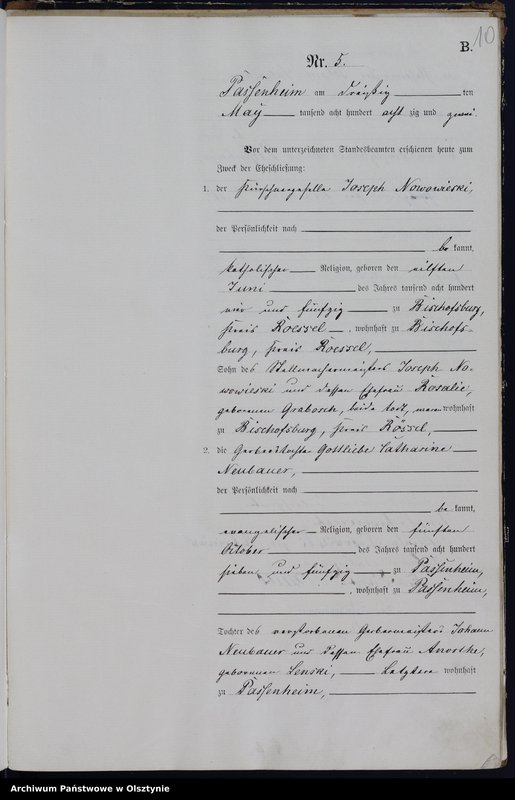 10
B.
Nr. 5.
Passenheim am dreißig ten
May tausend acht hundert acht zig und zwei.
Vor dem unterzeichneten Standesbeamten erschienen heute zum
Zweck der Eheschließung:
1. der Kürschnergeselle Joseph Nowowieski,
der Persönlichkeit nach
be kannt,
katholischer Religion, geboren den eilften
Juni des Jahres tausend acht hundert
vier und fünfzig zu Bischofsburg,
Kreis Roessel, wohnhaft zu Bischofs-
burg, Kreis Roessel,
Sohn des Stellmachermeisters Joseph No-
wowieski und dessen Ehefrau Rosalie,
geborenen Grabosch, beide todt, waren wohnhaft
zu Bischofsburg, Kreis Rössel,
2. die Gerbertochter Gottliebe Catharine
Neubauer,
der Persönlichkeit nach
be kannt,
evangelischer Religion, geboren den fünften
October des Jahres tausend acht hundert
sieben und fünfzig zu Passenheim,
, wohnhaft zu Passenheim,
Tochter des verstorbenen Gerbermeisters Johann
Neubauer und dessen Ehefrau Anorthe,
geborenen Lenski, Letztere wohnhaft
zu Passenheim,
Archiwum Państwowe w Olsztynie